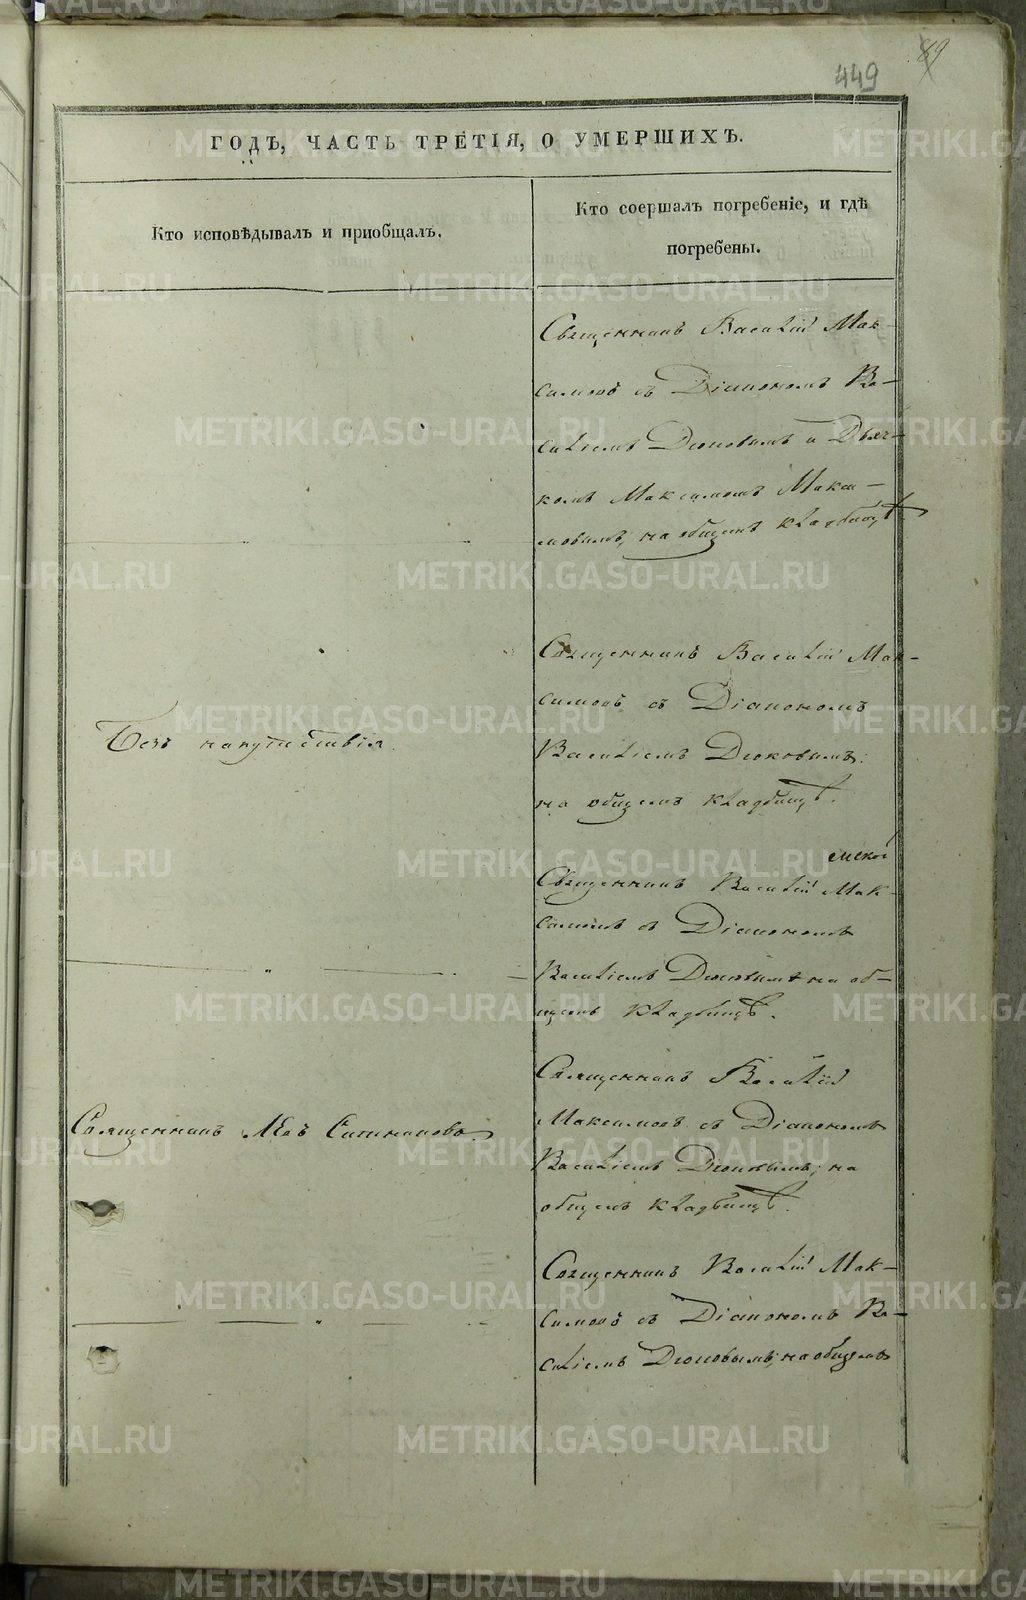 449
89
ГОДЪ, ЧАСТЬ ТРЕТІЯ, О УМЕРШИХЪ.
Кто исповѣдывалъ и приобщалъ.
Кто соершалъ погребеніе, и гдѣ
погребены.
Священникъ Василій Мак-
симовъ съ Діакономъ Ва-
силіемъ Дюковымъ и Дьяч-
комъ Максимомъ Макси-
мовымъ, на общемъ кладбищѣ
Священникъ Василій Мак-
симовъ съ Діакономъ
Василіемъ Дюковымъ:
на общемъ кладбищѣ.
Безъ напутствія.
Священникъ Василій Мак-
симовъ съ Діакономъ
Василіемъ Дюковымъ на об-
щемъ кладбищѣ.
Священникъ Василій
Максимовъ съ Діакономъ
Василіемъ Дюковымъ; на
общемъ кладбищѣ.
Священникъ Левъ
Священникъ Василій Мак-
симовъ съ Діакономъ Ва-
силіемъ Дюковымъ; на общемъ
METRIKI.GASO-URAL.RU